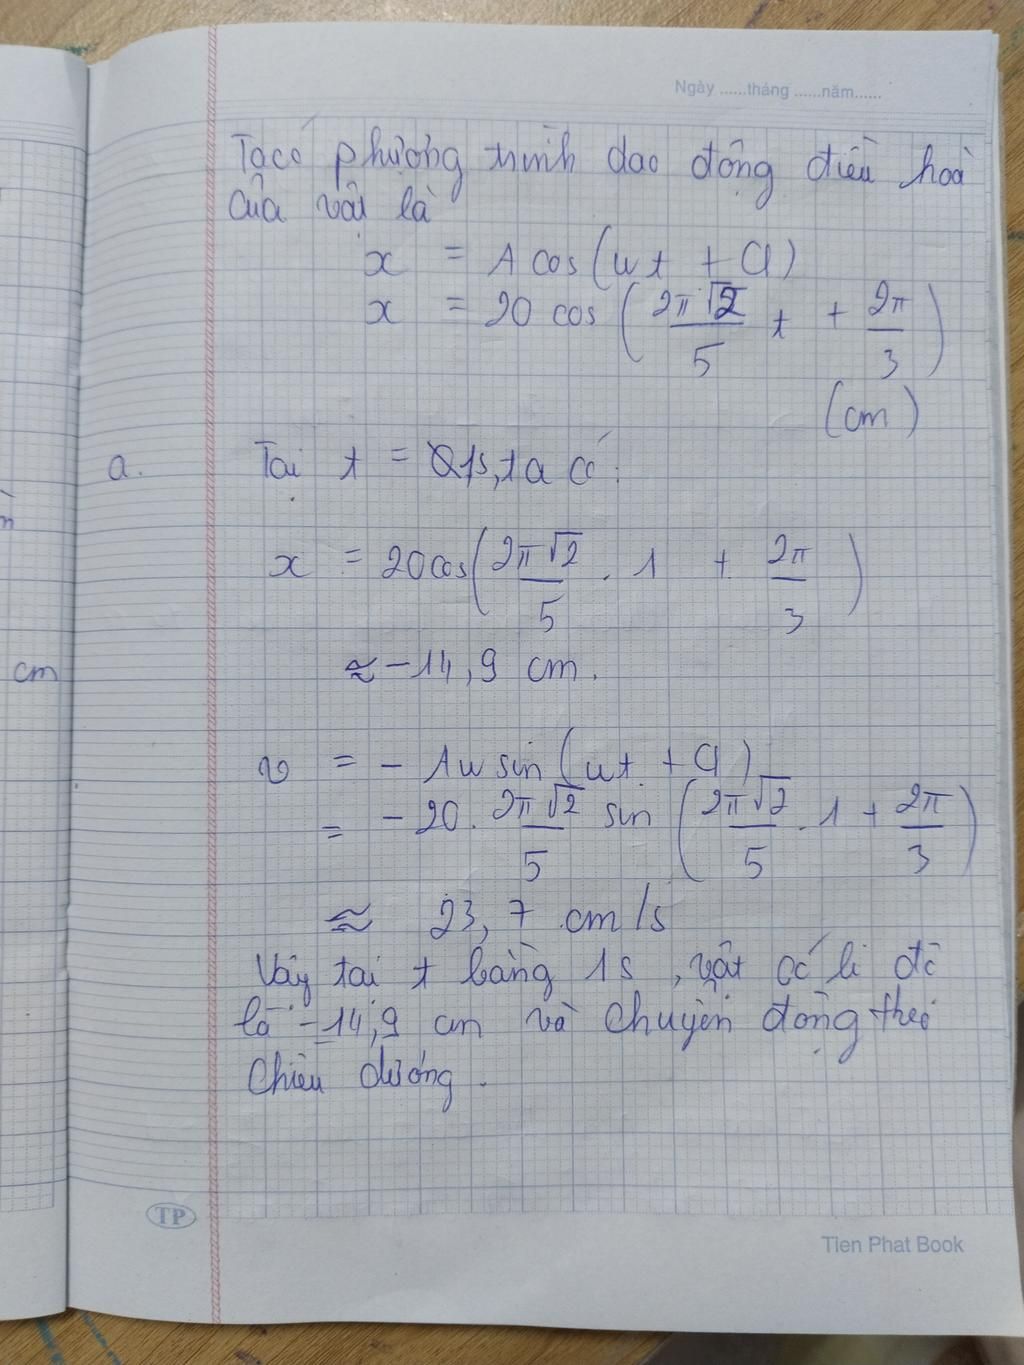 Ngày ......tháng ......năm......
Ta có phương trình dao động điều hoà
của vật là
x = A cos(ωt + φ)
x = 20 cos(2π√2/5 t + 2π/3)
(cm)
a. Tại t = 1s, ta có:
x = 20cos(2π√2/5 . 1 + 2π/3)
≈ -14,9 cm.
cm
v = - Aω sin(ωt + φ)
= - 20. 2π√2/5 sin(2π√2/5 . 1 + 2π/3)
≈ 23,7 cm/s
Vậy tại t bằng 1s, vật có li độ
là -14,9 cm và chuyển động theo
chiều dương.
TP
Tien Phat Book